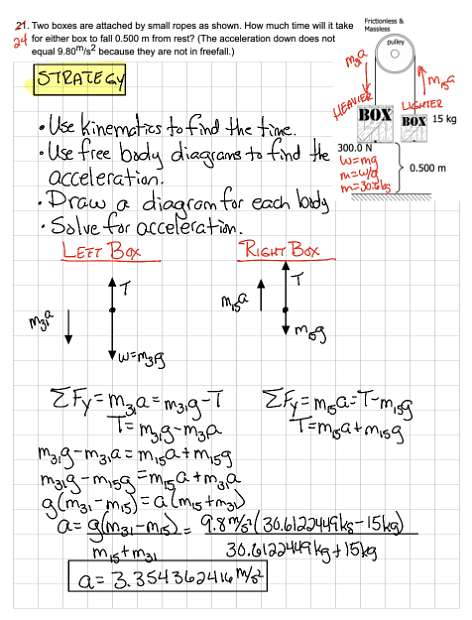 21. Two boxes are attached by small ropes as shown. How much time will it take
24 for either box to fall 0.500 m from rest? (The acceleration down does not
equal 9.80m/s² because they are not in freefall.)
Frictionless &
Massless
pulley
m₃₁a
m₁₅a
HEAVIER
LIGHTER
BOX
BOX
15 kg
300.0 N
W=mg
m=w/g
m=30.6kg
0.500 m
STRATEGY
• Use kinematics to find the time.
• Use free body diagrams to find the
acceleration.
• Draw a diagram for each body
• Solve for acceleration.
LEFT BOX
RIGHT BOX
T
m₃₁a
W=m₃₁g
T
m₁₅a
m₁₅g
ΣFy=m₃₁a=m₃₁g-T
T=m₃₁g-m₃₁a
ΣFy=m₁₅a=T-m₁₅g
T=m₁₅a+m₁₅g
m₃₁g-m₃₁a=m₁₅a+m₁₅g
m₃₁g-m₁₅g=m₁₅a+m₃₁a
g(m₃₁-m₁₅)=a(m₁₅+m₃₁)
a=g(m₃₁-m₁₅)= 9.8m/s²(30.6122449kg-15kg)
m₁₅+m₃₁ 30.6122449kg+15kg
a=3.354362416m/s²